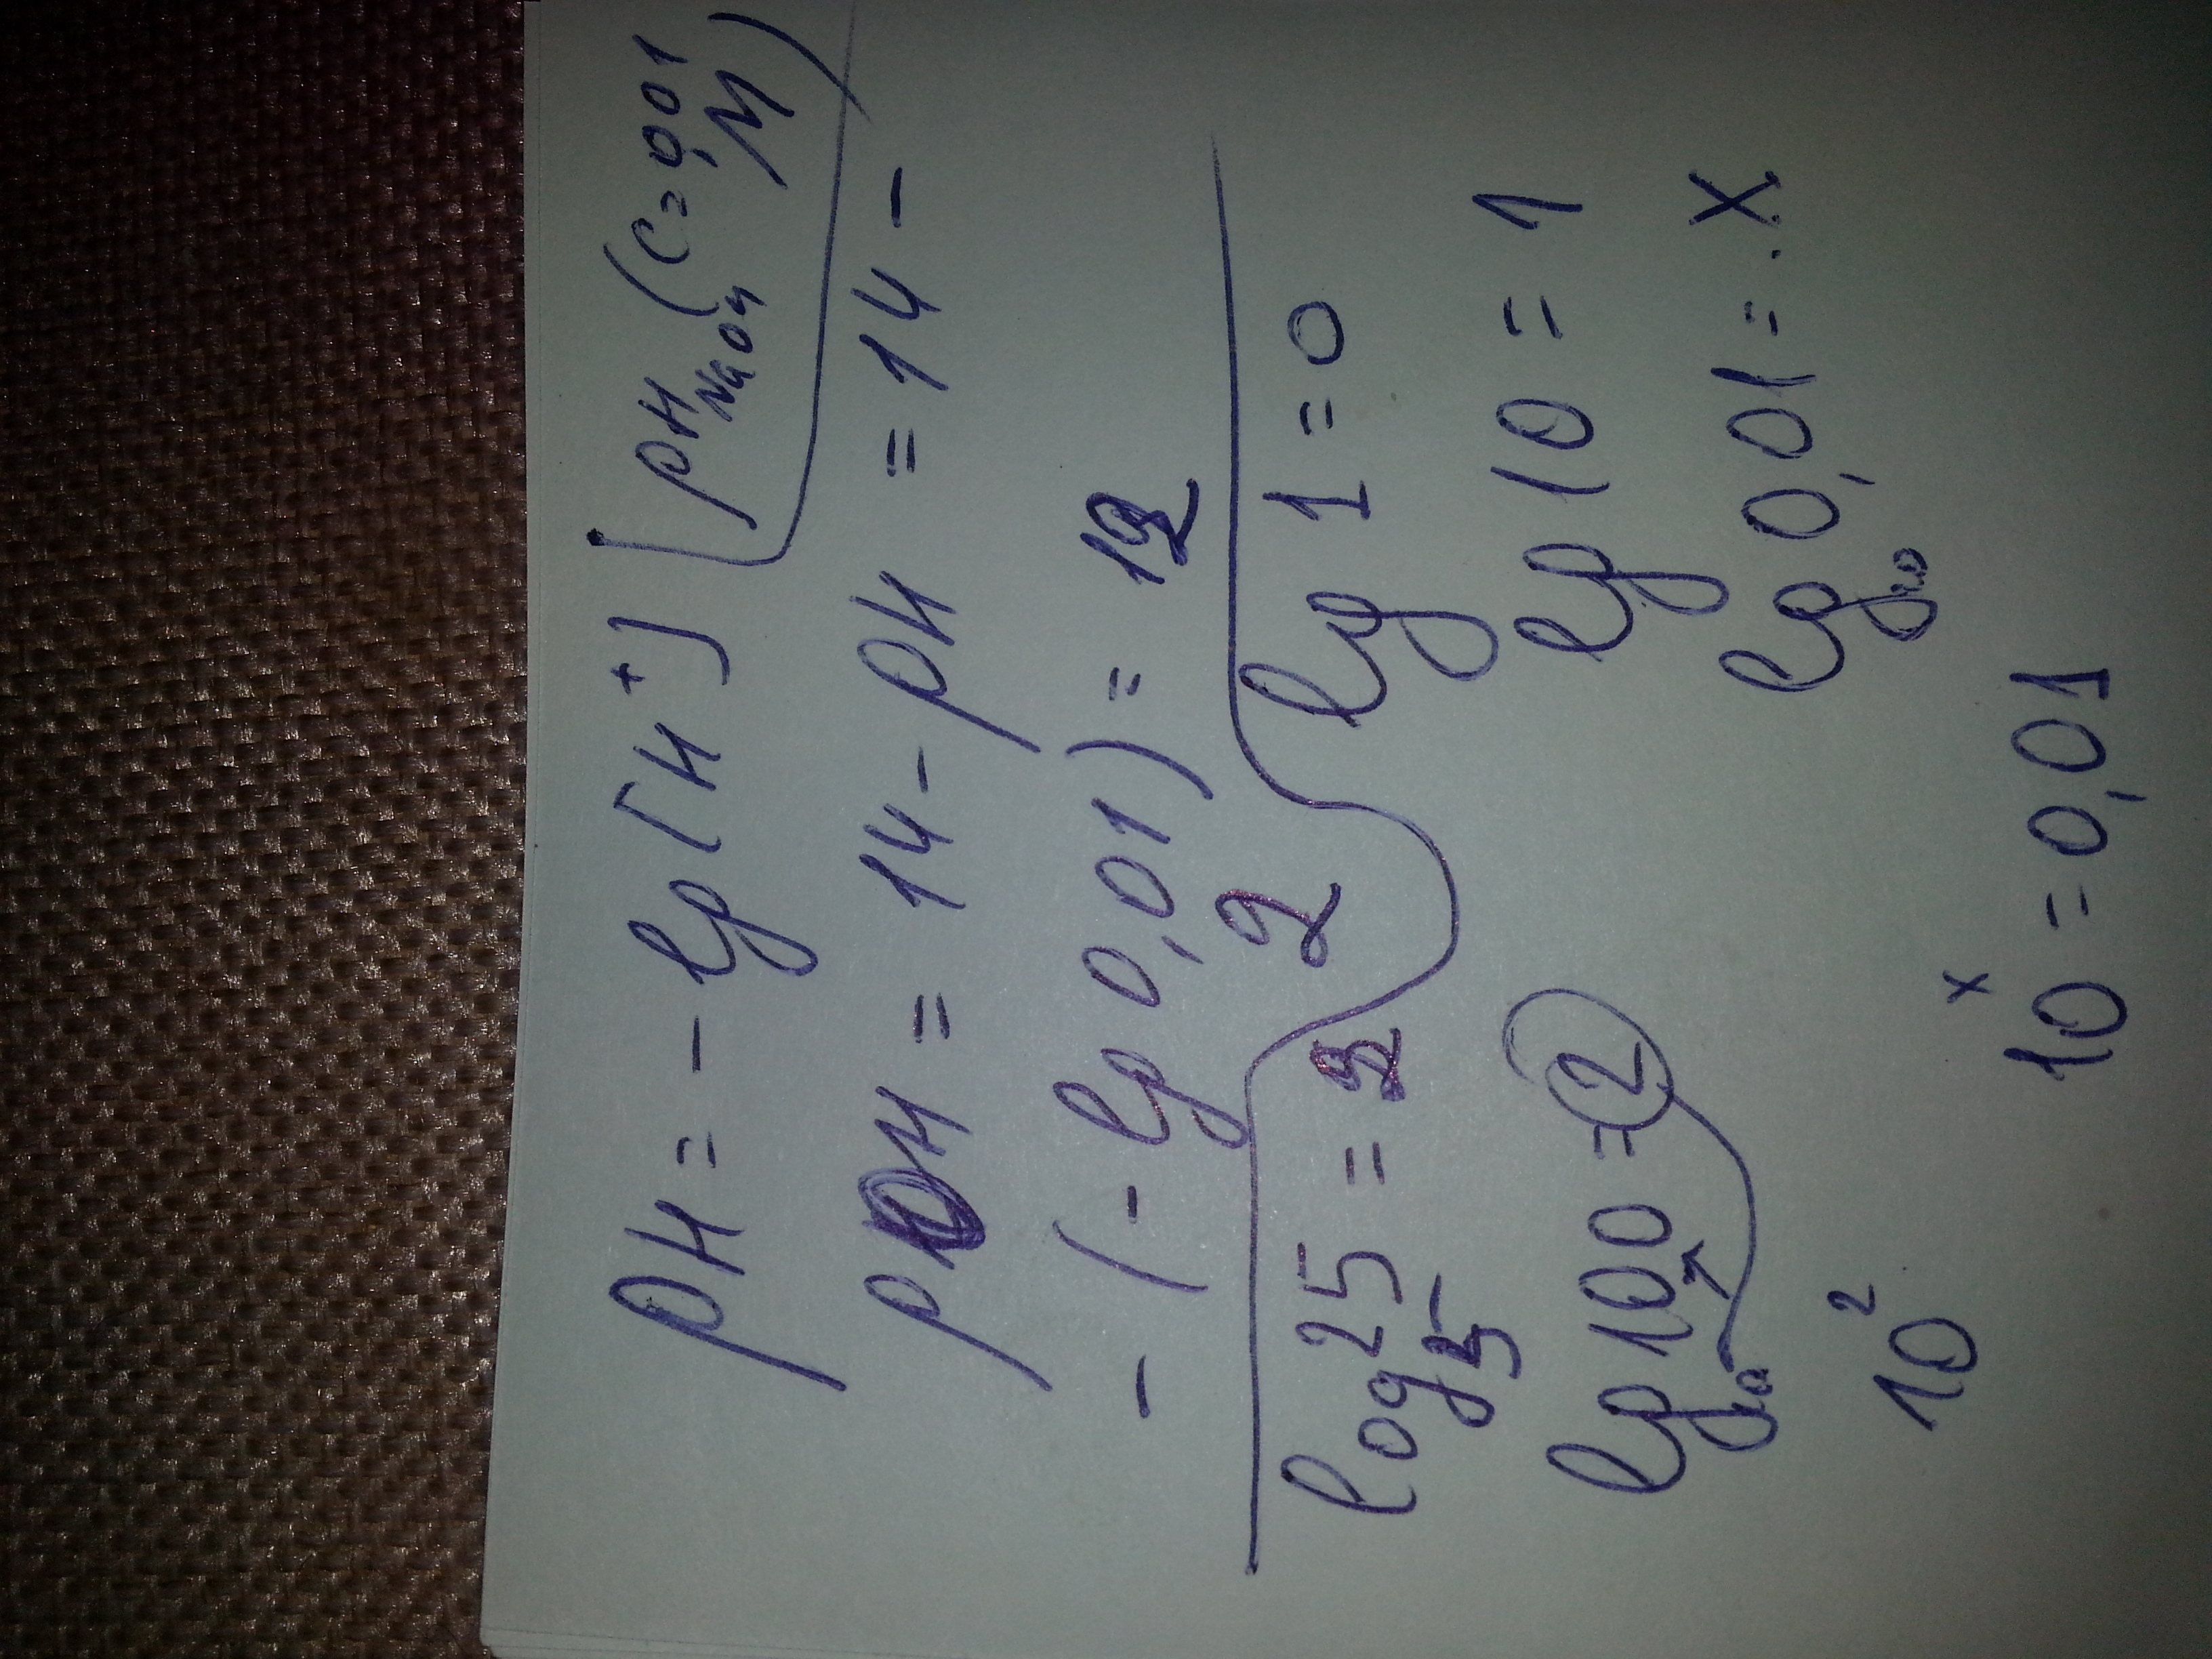 pH = - lg [H⁺]
pH NaOH (C = 0,01 M)
pOH = 14 - pH = 14 -
- (- lg 0,01) = 12
2
log₅ 25 = 2
lg₁₀ 100 = 2
10²
lg 1 = 0
lg 10 = 1
lg₁₀ 0,01 = x
10ˣ = 0,01